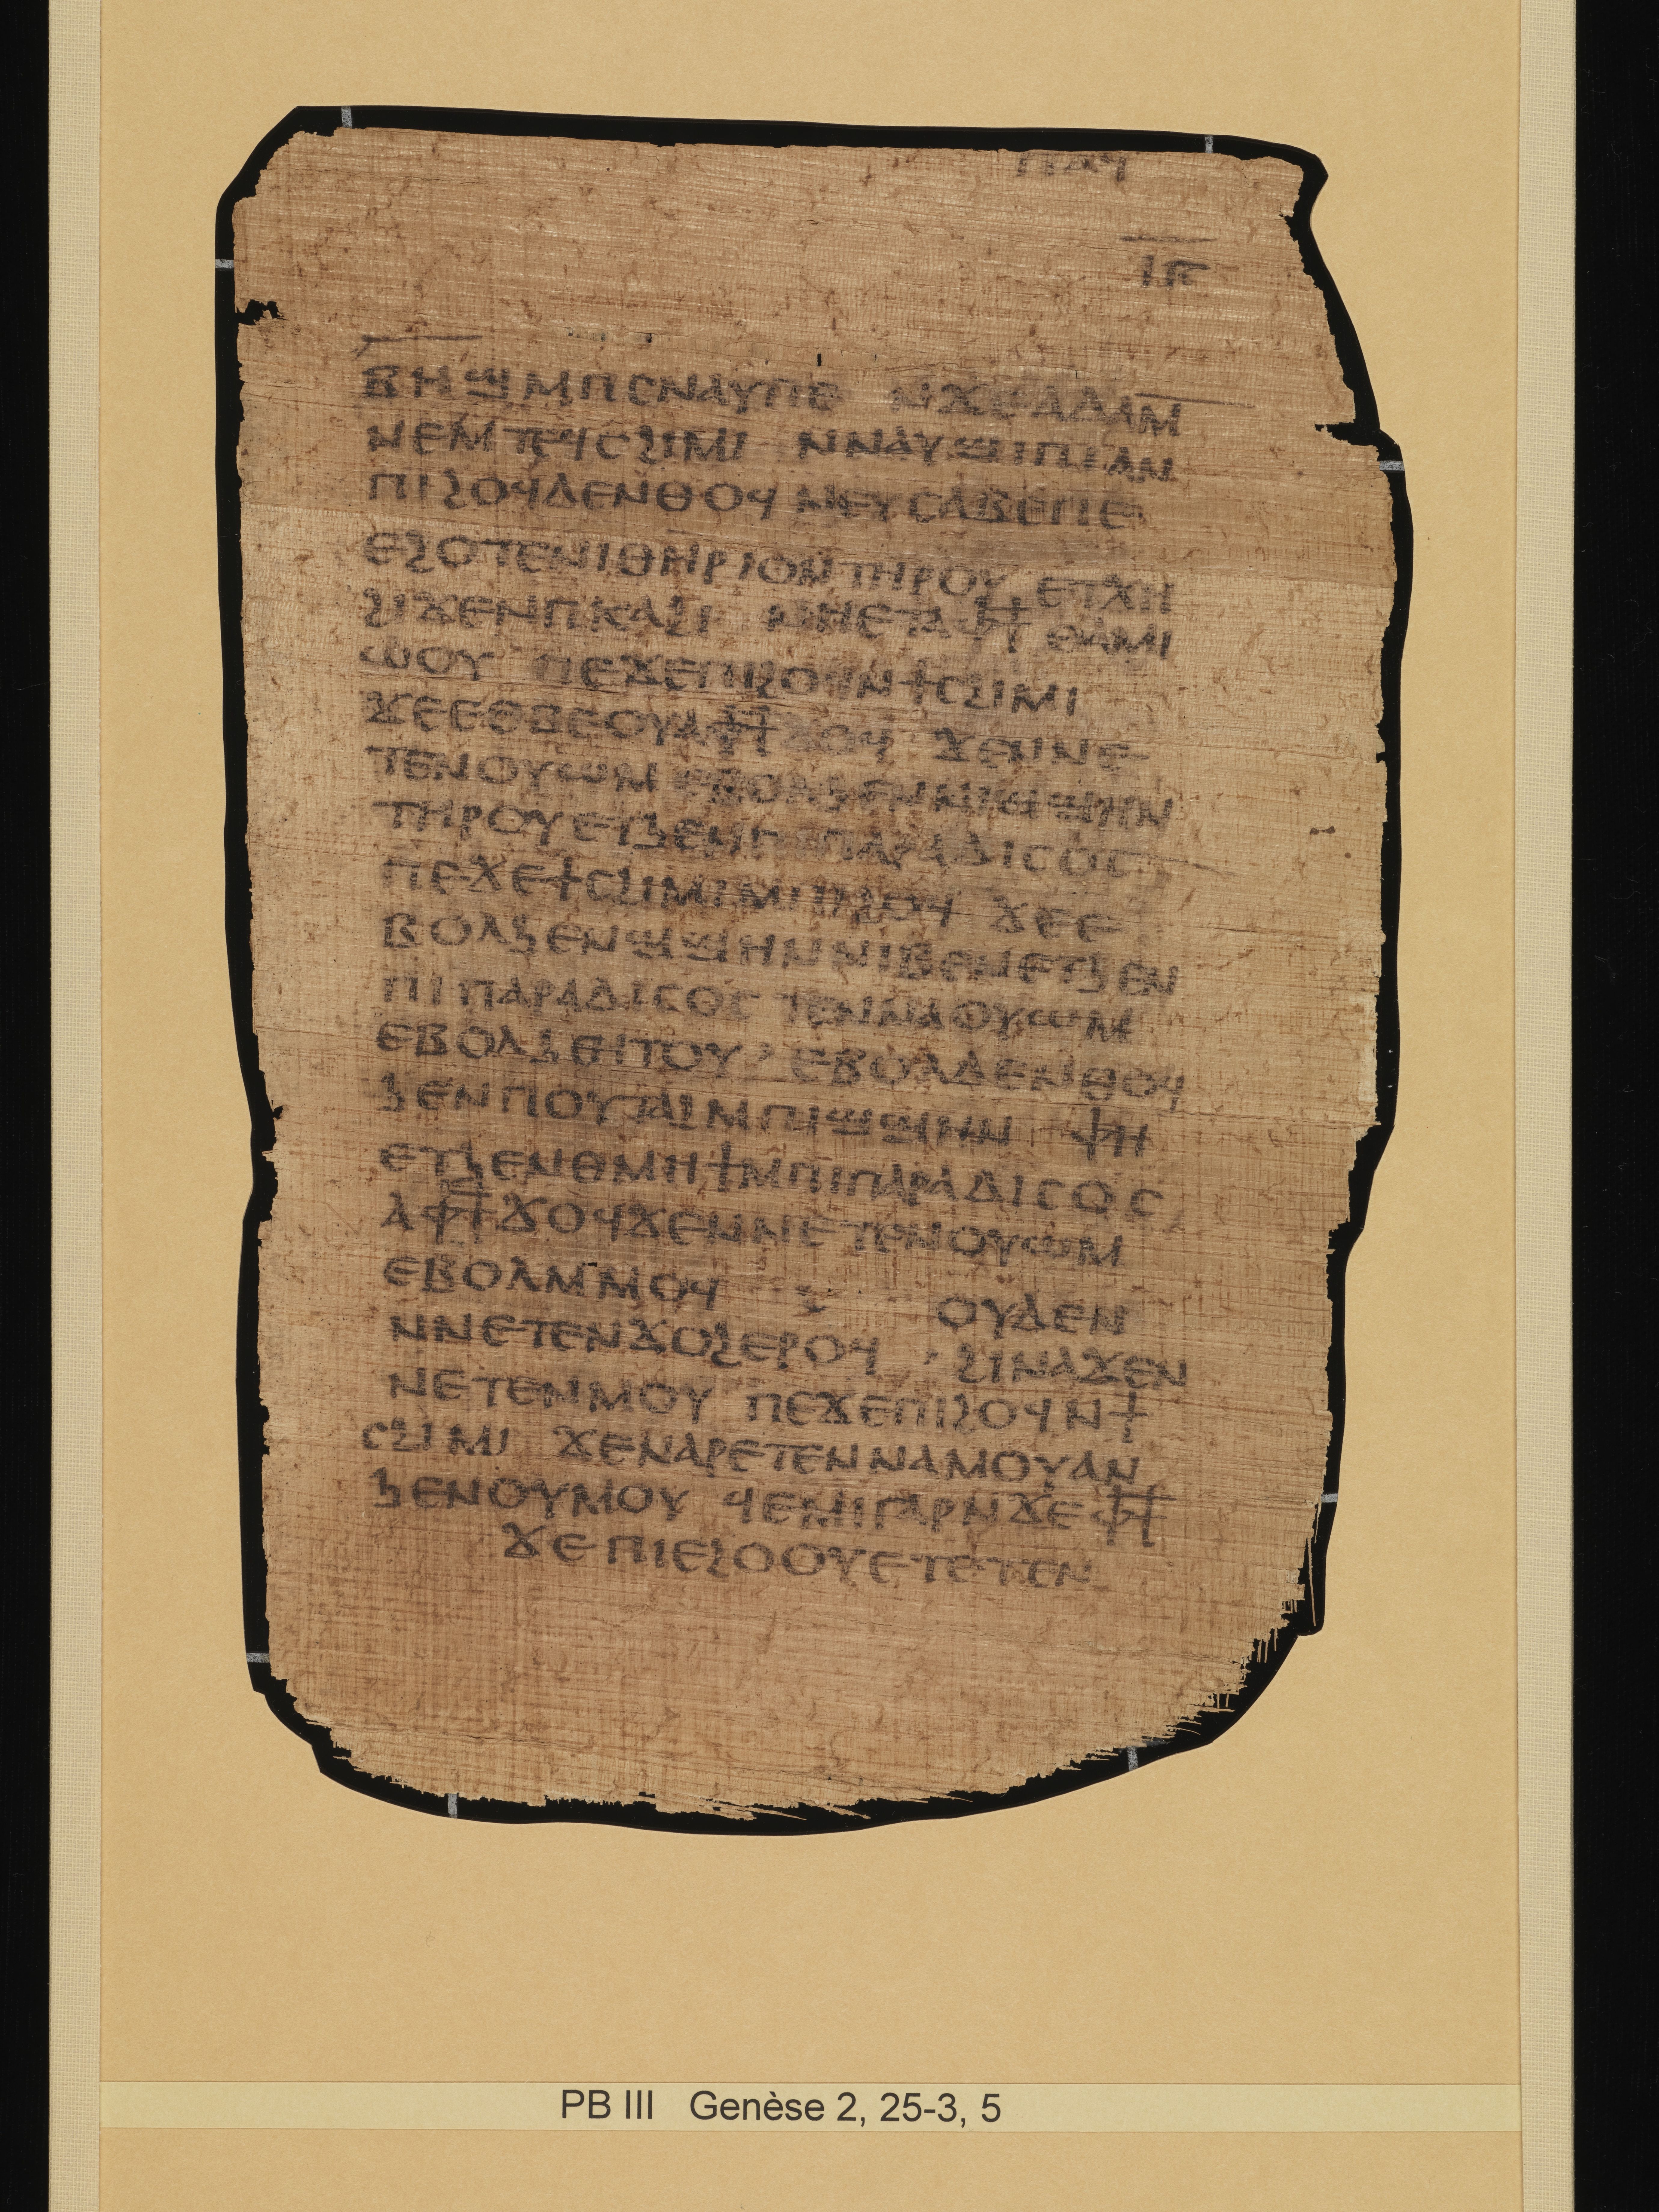 ⲓⲋ
ⲃⲏϣ ⲙⲡⲥⲛⲁⲩⲡⲉ ⲛϫⲉⲁⲇⲁⲙ
ⲛⲉⲙⲧⲉϥⲥϩⲓⲙⲓ ⲛⲛⲁⲩϣⲓⲡⲓⲁⲛ
ⲡⲓϩⲟϥⲇⲉⲛⲑⲟϥ ⲛⲉⲩⲥⲁⲃⲉⲡⲉ
ⲉϩⲟⲧⲉⲛⲓⲑⲏⲣⲓⲟⲛⲧⲏⲣⲟⲩ ⲉⲧⲭⲏ
ϩⲓϫⲉⲛⲡⲕⲁϩⲓ ⲛⲏⲉⲧⲁⲫϯ ⲑⲁⲙⲓ
ⲱⲟⲩ ⲡⲉϫⲉⲡⲓϩⲟϥⲛϯⲥϩⲓⲙⲓ
ϫⲉⲉⲑⲃⲉⲟⲩⲁⲫϯϫⲟϥ ϫⲉⲛⲛⲉ
ⲧⲉⲛⲟⲩⲱⲙ ⲉⲃⲟⲗϧⲉⲛ ϣϣⲏⲛ
ⲧⲏⲣⲟⲩⲉⲧϧⲉⲛⲡⲓⲡⲁⲣⲁⲇⲓⲥⲟⲥ
ⲡⲉϫⲉϯⲥϩⲓⲙⲓⲙⲡⲓϩⲟϥ ϫⲉⲉ
ⲃⲟⲗϧⲉⲛϣϣⲏⲛⲛⲓⲃⲉⲛⲉⲧϧⲉⲛ
ⲡⲓⲡⲁⲣⲁⲇⲓⲥⲟⲥ ⲧⲉⲛⲛⲁⲟⲩⲱⲙ
ⲉⲃⲟⲗϧⲏⲧⲟⲩ ⲉⲃⲟⲗⲇⲉⲛⲑⲟϥ
ϧⲉⲛⲡⲟⲩⲧⲁϩⲙⲡⲓϣϣⲏⲛ ⲫⲏ
ⲉⲧϧⲉⲛⲑⲙⲏϯⲙⲡⲓⲡⲁⲣⲁⲇⲓⲥⲟⲥ
ⲁⲫϯϫⲟϥϫⲉⲛⲛⲉⲧⲉⲛⲟⲩⲱⲙ
ⲉⲃⲟⲗⲙⲙⲟϥ ⲟⲩⲇⲉⲛ
ⲛⲛⲉⲧⲉⲛϫⲟϩⲉⲣⲟϥ ϩⲓⲛⲁϫⲉⲛ
ⲛⲉⲧⲉⲛⲙⲟⲩ ⲡⲉϫⲉⲡⲓϩⲟϥⲛϯ
ⲥϩⲓⲙⲓ ϫⲉⲛⲁⲣⲉⲧⲉⲛⲛⲁⲙⲟⲩⲁⲛ
ϧⲉⲛⲟⲩⲙⲟⲩ ϥⲉⲙⲓⲅⲁⲣⲛϫⲉⲫϯ
ϫⲉⲡⲓⲉϩⲟⲟⲩⲉⲧⲉⲧⲉⲛ
PB III Genèse 2, 25-3, 5